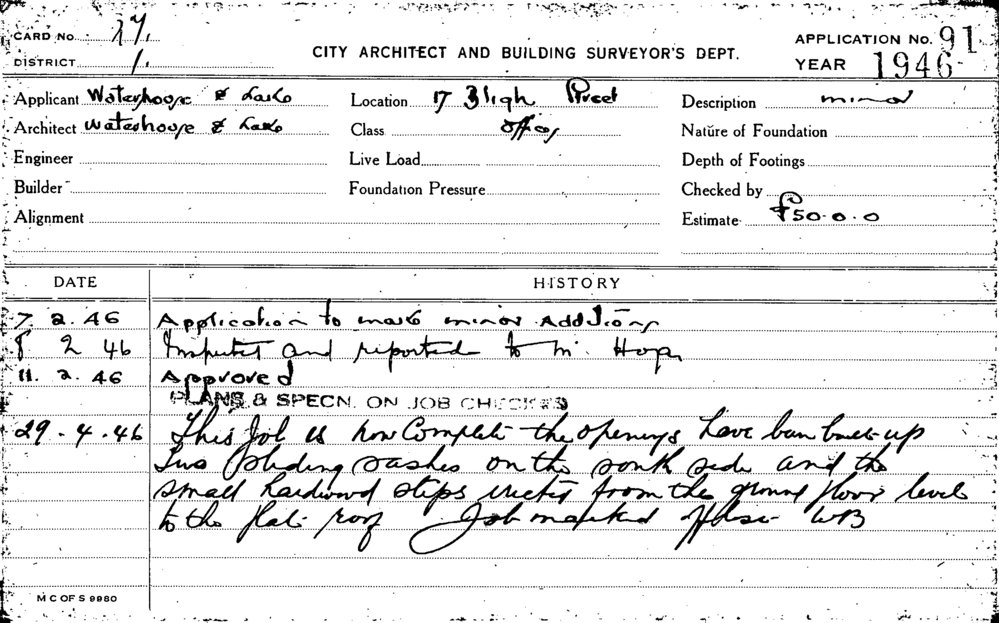 CARD No. 27.
DISTRICT 1.
CITY ARCHITECT AND BUILDING SURVEYOR'S DEPT.
APPLICATION No. 91
YEAR 1946
Applicant Waterhouse & Lake
Location 17 Bligh Street
Description minor
Architect Waterhouse & Lake
Class Offices
Nature of Foundation
Engineer
Live Load
Depth of Footings
Builder
Foundation Pressure
Checked by
Alignment
Estimate £50.0.0
DATE
HISTORY
7. 2. 46 Application to make minor additions
8 2 46 Inspected and reported to Mr.
11. 2. 46 Approved
PLANS & SPECN. ON JOB CHECKED
29. 4. 46 This Job is now Complete the openings have been built up
Two sliding sashes on the south side and the
small hardwood steps erected from the ground floor level
to the flat roof Job marked off WB
M C OF S 9980